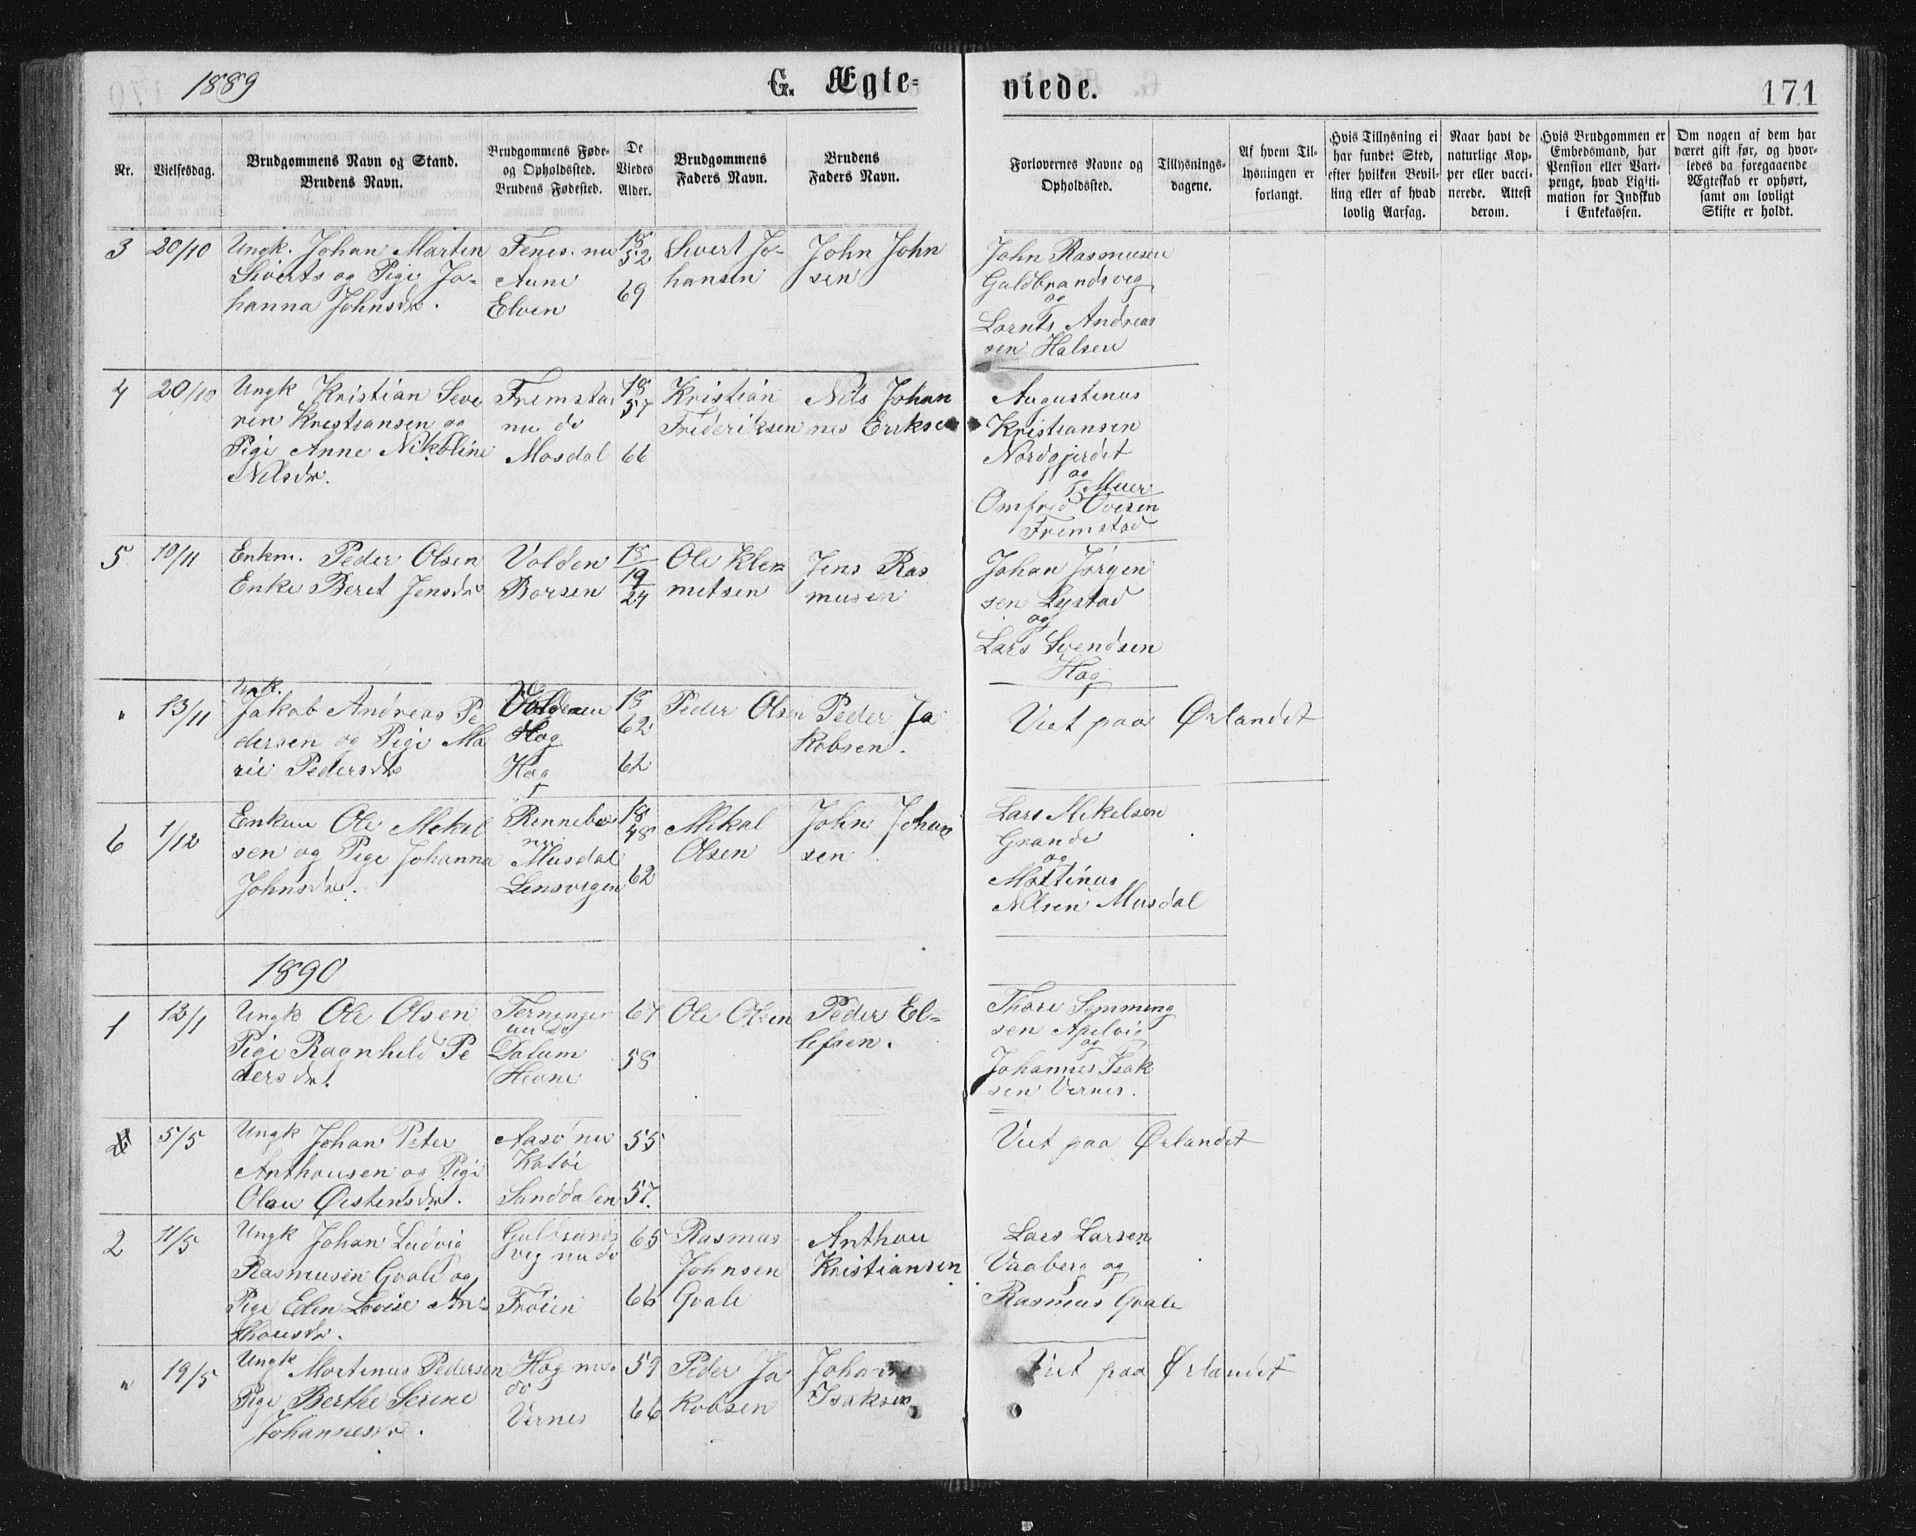 1889
G. Ægte-
viede.
171
Nr.
Vielsesdag.
Brudgommens Navn og Stand.
Brudens Navn.
Brudgommens Føde-
og Opholdssted.
Brudens Fødested.
De
Viedes
Alder.
Brudgommens
Faders Navn.
Brudens
Faders Navn.
Forlovernes Navne og
Opholdssted.
Tillysnings-
dagene.
Af hvem Til-
lysningen er
forlangt.
Hvis Tillysning ei
har fundet Sted,
efter hvilken Bevil-
ling eller af hvad
lovlig Aarsag.
Naar havt de
naturlige Kop-
per eller vacci-
nerede. Attest
derom.
Hvis Brudgommen er
Embedsmand, har
Pension eller Vart-
penge, hvad Ligiti-
mation for Indskud
i Enkekassen.
Om nogen af dem har
været gift før, og hvor-
ledes da foregaaende
Ægteskab er ophørt,
samt om lovligt
Skifte er holdt.
3
20/10
Ungk. Johan Martin
Siverts og Pige Jo-
hanna Johnsdr.
Fenes. nu
Aune
Elven
18
52
69
Sivert Jo-
hansen
John John
sen
John Rasmusen
Guldbrandsvig
og
Lornts Andreas
sen Halsen
4
20/10
Ungk Kristian Seve
rin Kristiansen og
Pige Anne Nikoline
Nilsdr.
Fremstad
nu do
Mosdal
18
57
66
Kristian
Frideriksen
Nils Johan
nes Eriksen
Augustinus
Kristiansen
Nordgjerdet
og
Omfred Ovesen
Fremstad
5
10/11
Enkm. Peder Olsen
Enke Beret Jensdr
Volden
Borsen
18
19
24
Ole Kle-
metsen
Jens Ras
musen
Johan Jörgen
sen Lystad
og
Lars Svendsen
Hog
"
13/11
Ungk.
Jakob Andreas Pe
dersen og Pige Ma
rie Pedersdr
Hog
Hog
18
62
62
Peder Olsen
Peder Ja
kobsen.
Viet paa Ørlandet
6
1/12
Enkm Ole Mekal
sen og Pige Johanna
Johnsdr.
Rennebo
nu
Musdal
Lensvigen
18
48
62
Mekal
Olsen
John Johan
sen
Lars Mekelsen
Grande
og
Martinus
Nilsen Musdal
1890
1
12/1
Ungk Ole Olsen
Pige Ragnhild Pe
dersdr.
Terningen
nu do
Dalum
Hevne
67
58
Ole Olsen
Peder El-
lefsen.
Thore Semming
sen Apelvig
og
Johannes Isak
sen Vernes.
5/5
Ungk Johan Peter
Anthonsen og Pige
Olau Øistensdr.
Aasö nu
Katöe
Sanddalen
55
57.
Viet paa Ørlandet
2
11/5
Ungk Johan Ludvig
Rasmusen Gvale og
Pige Elen Lovise An-
thonsdr.
Gulbrands
vig nu do
Fröien
65
66
Rasmus
Johnsen
Gvale
Anthon
Kristiansen
Lars Larsen
Vaaberg og
Rasmus Gvale
"
19/5
Ungk Mortinus Pedersen
Pige Berthe Serine
Johannesdr.
Hog nu
do
Vernes
59
66
Peder Ja
kobsen
Johannes
Isaksen
Viet paa Ørlandet